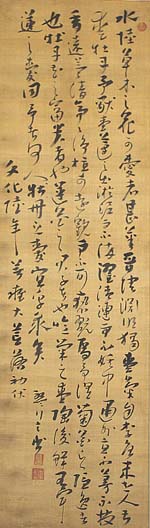 水陸草木之花可愛者甚蕃晉陶淵明獨愛菊自李唐來世人甚
愛牡丹予獨愛蓮之出淤泥而不染濯清漣而不妖中通外直不蔓不枝
香遠益清亭亭淨植可遠觀而不可褻翫焉予謂菊花之隱逸者
也牡丹花之富貴者也蓮花之君子者也噫菊之愛陶後鮮有聞
蓮之愛同予者何人牡丹之愛宜乎衆矣
文化陸年 初伏